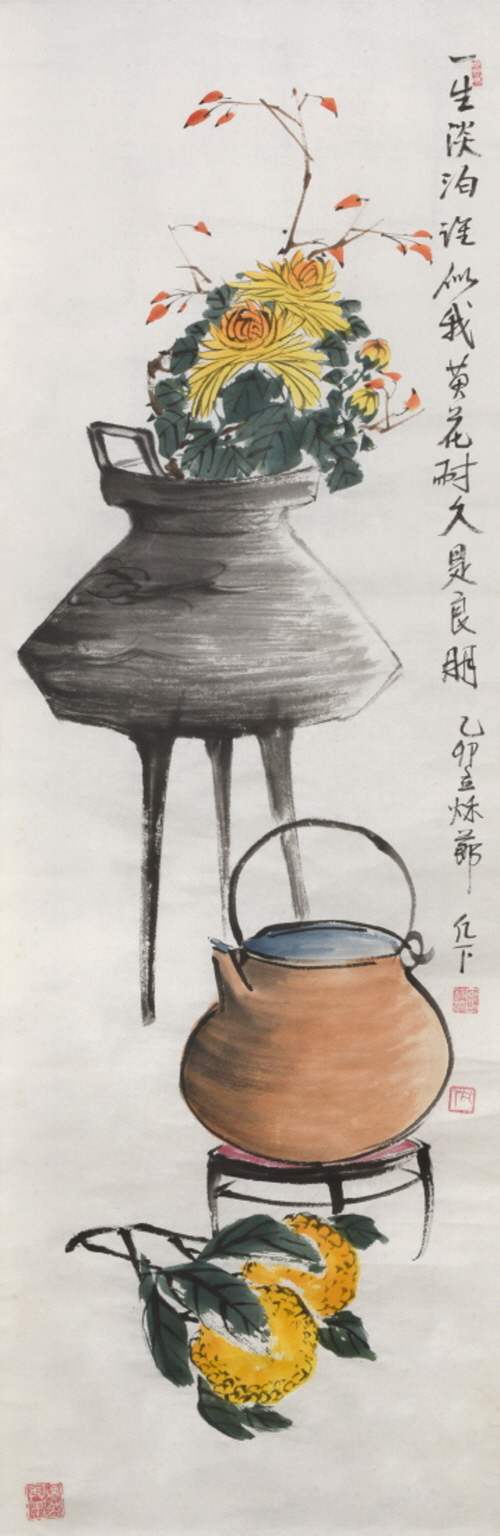 一生淡泊谁似我黄花耐久是良朋
乙卯立秌節